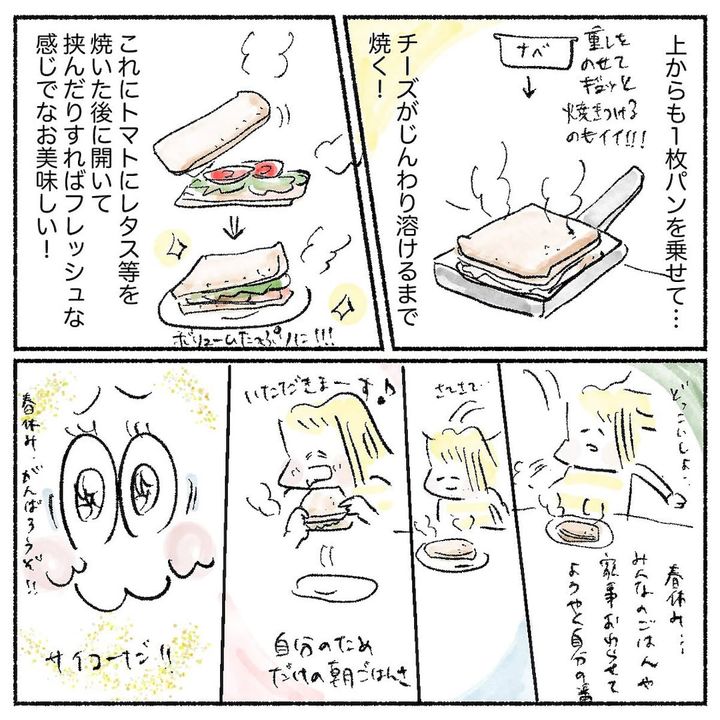 上からも1枚パンを乗せて…
ナベ
重しを
のせて
ギュッと
焼きつける
のもイイ!!!
チーズがじんわり溶けるまで
焼く!
これにトマトにレタス等を
焼いた後に開いて
挟んだりすればフレッシュな
感じでなお美味しい!
ボリュームたっぷりに!!!
どっこいしょ…
春休み…
みんなのごはんや
家事おわらせて
ようやく自分の番
さてさて…
いただきまーす♪
自分のため
だけの朝ごはんさ
春休み、がんばろうぞ!!
サイコーだ!!